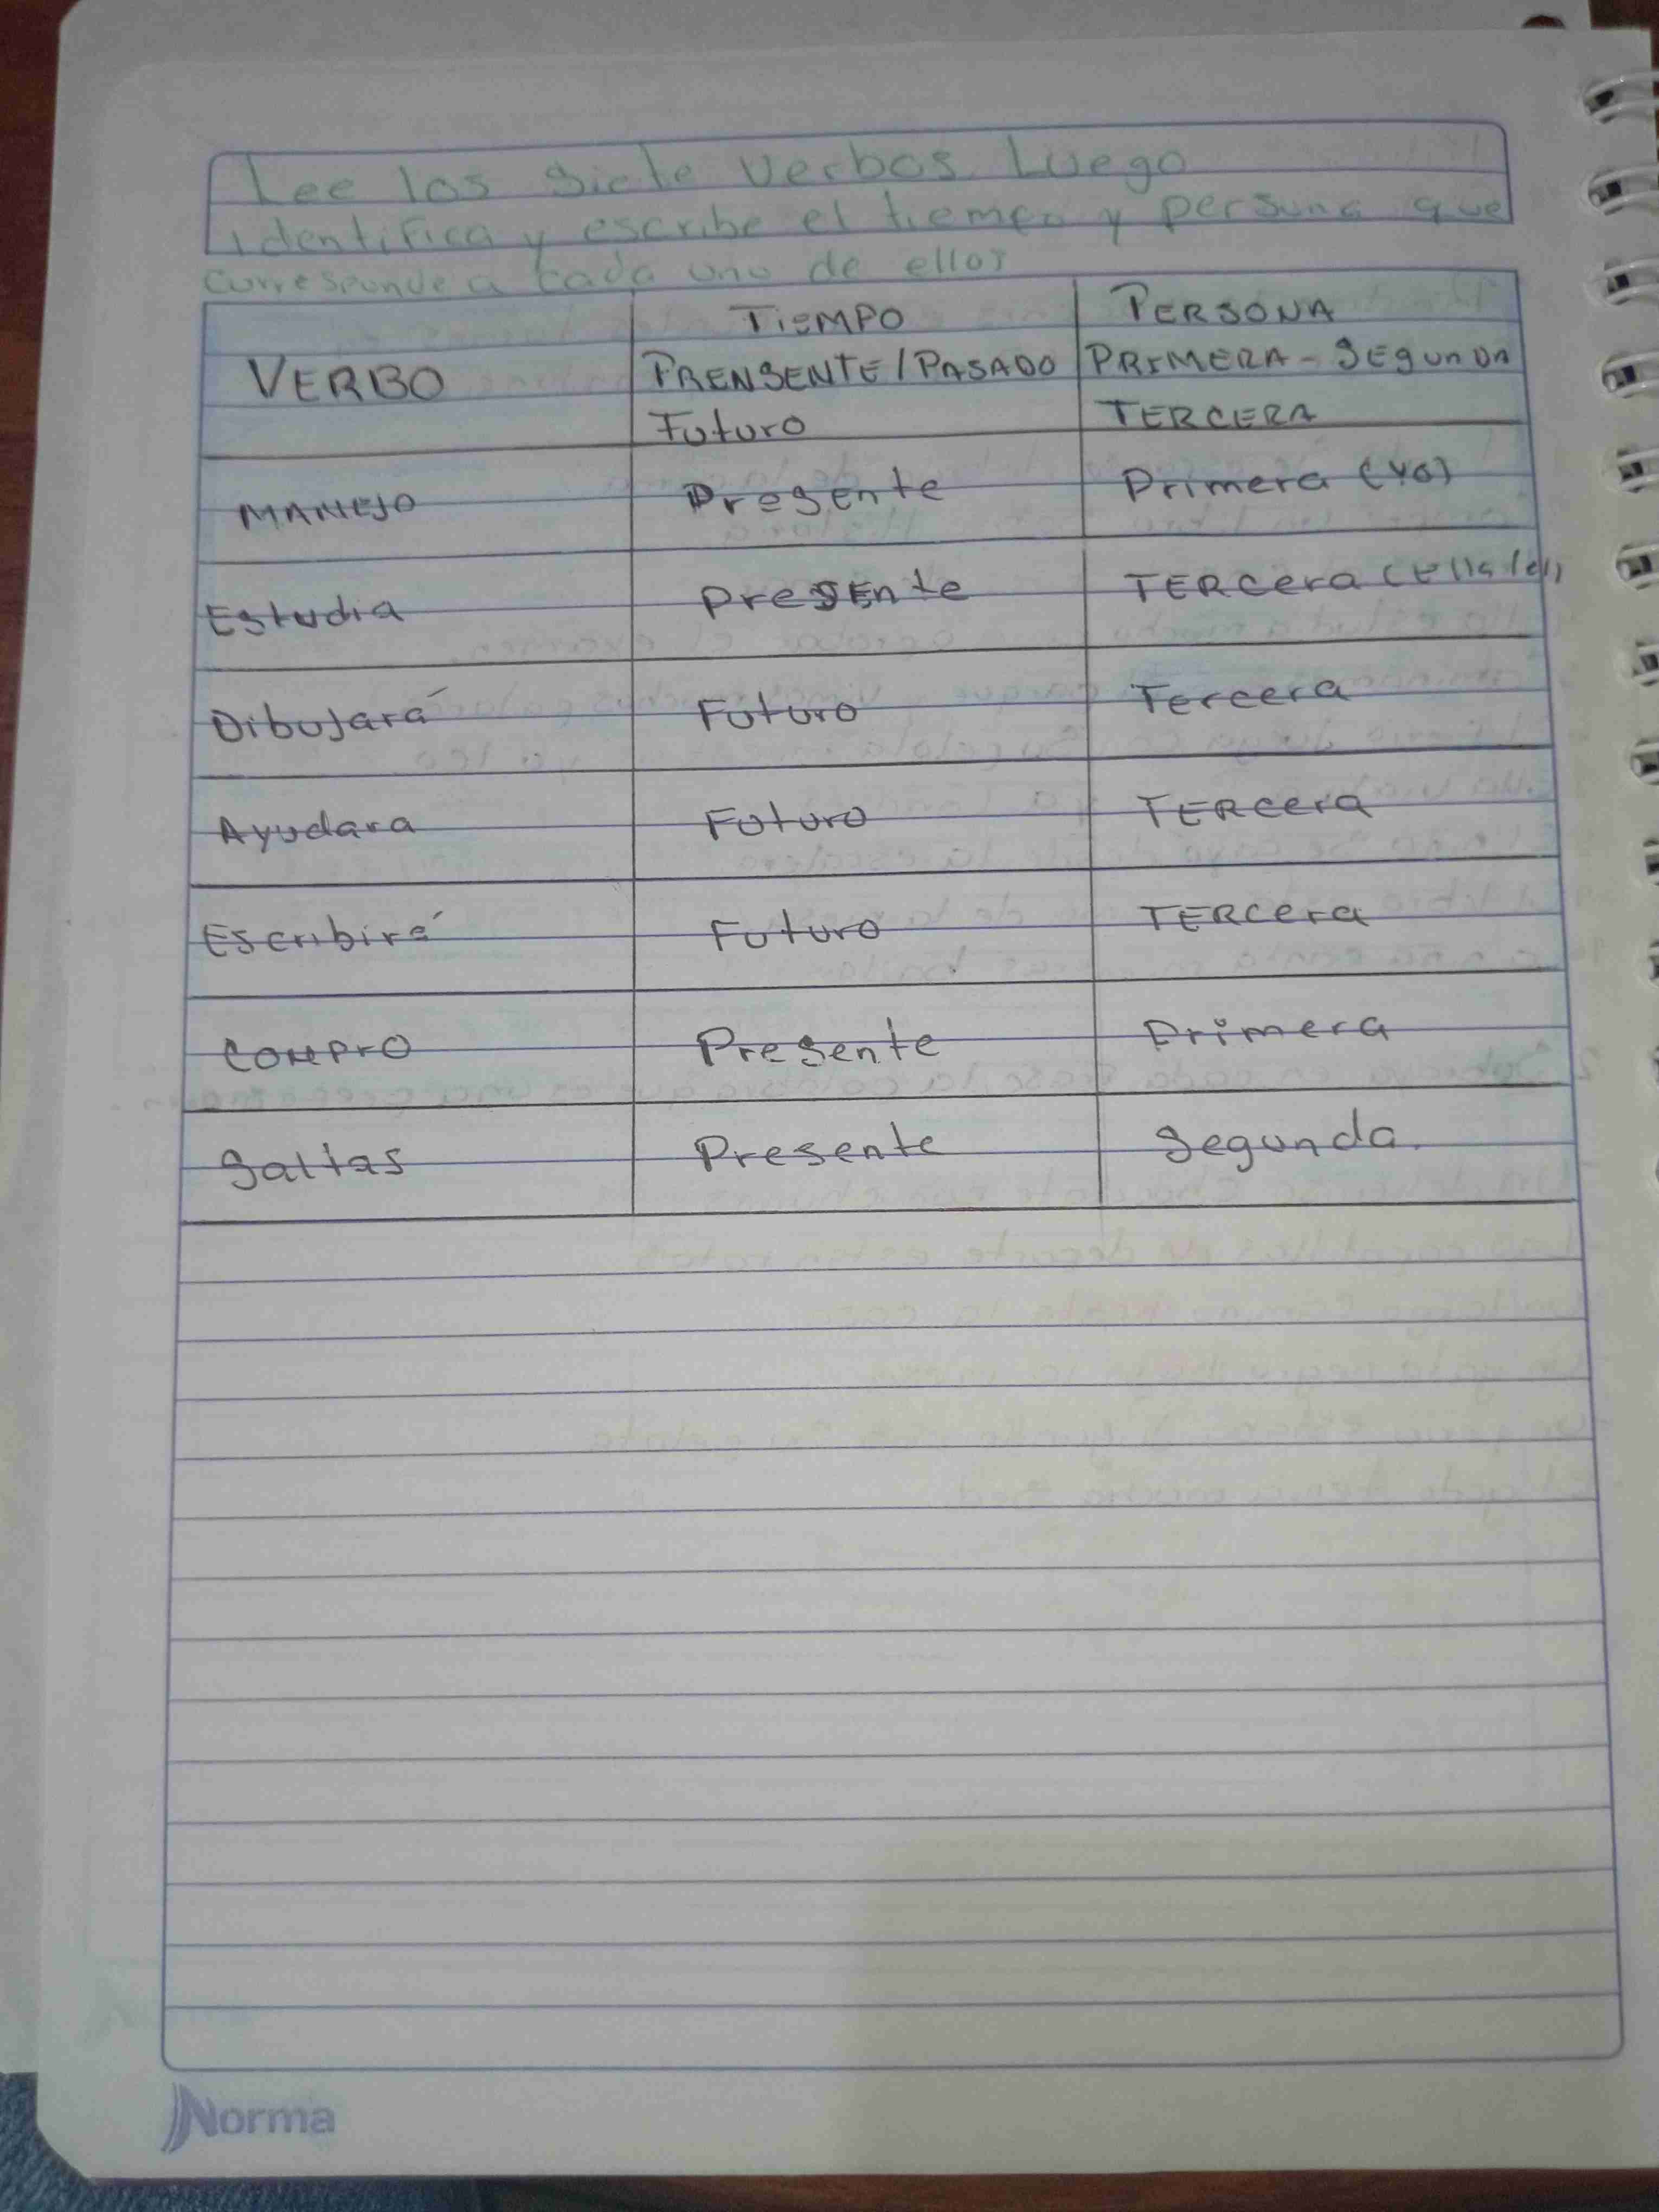 Lee los siete verbos Luego
identifica y escribe el tiempo y persona que
corresponde a cada uno de ellos
VERBO TIEMPO PRENSENTE / PASADO Futuro PERSONA PRIMERA - SEGUNDA TERCERA
MANEJO Presente Primera (yo)
Estudia Presente TERCera (Ella/el)
Dibujará Futuro Tercera
Ayudara Futuro TERCera
Escribirá Futuro TERCera
COMPrO Presente Primera
Saltas Presente Segunda.
Norma